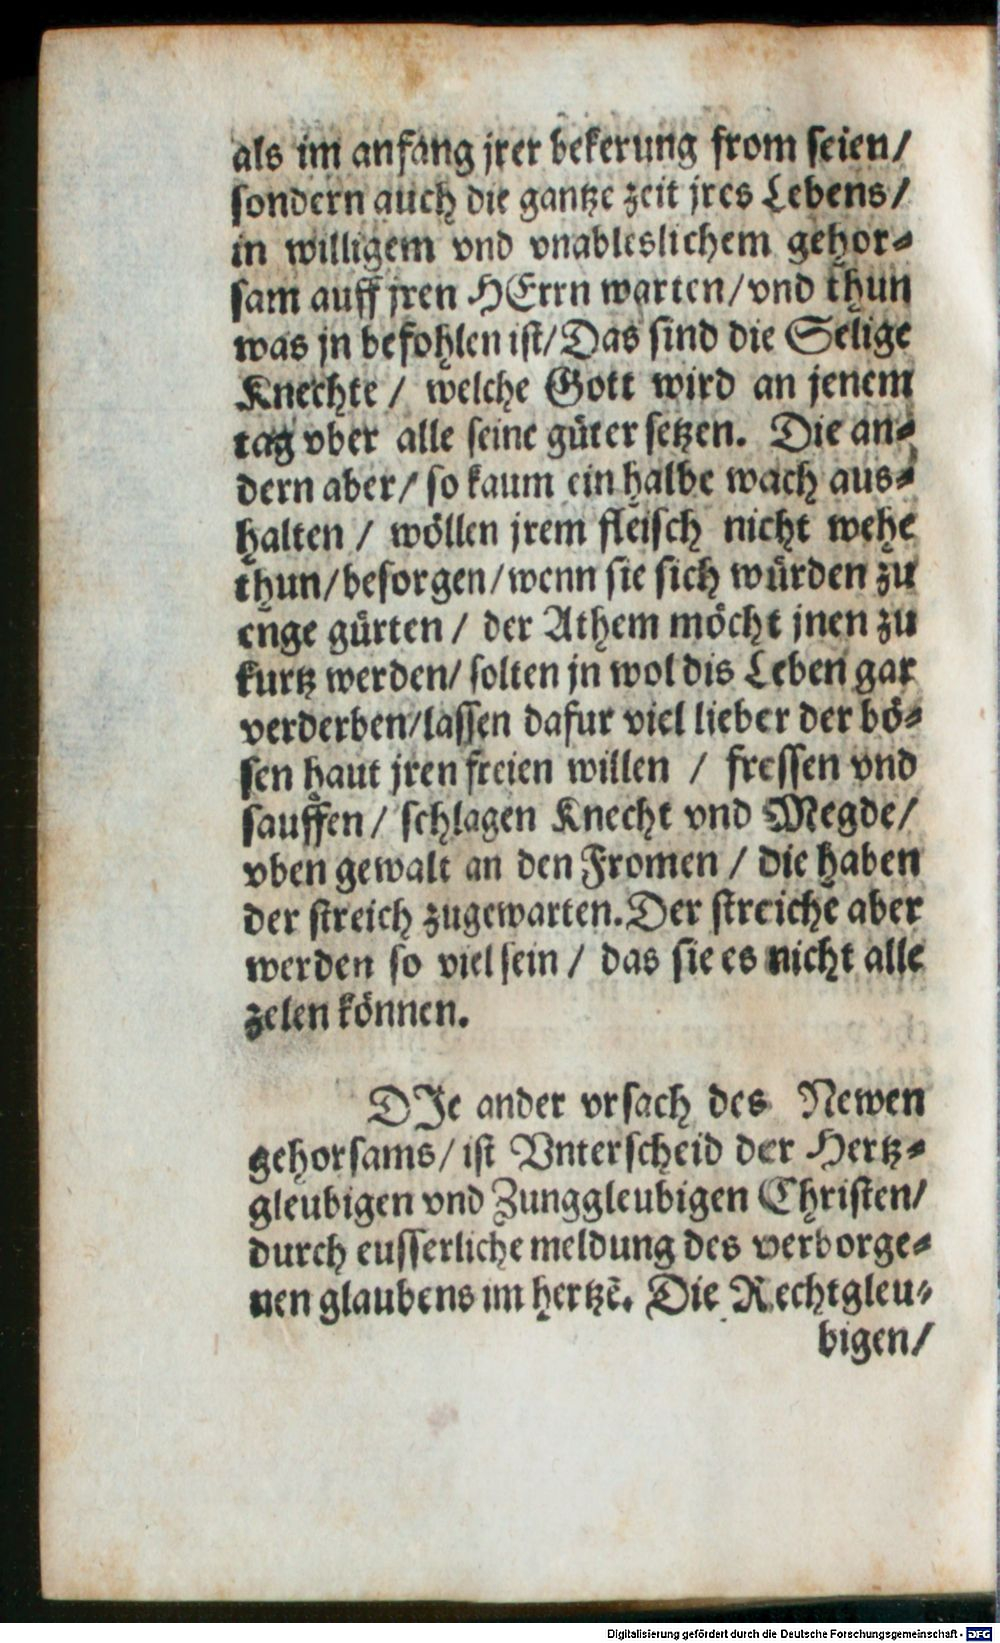 als im anfang jrer bekerung from seien/
sondern auch die gantze zeit jres Lebens/
in willigem vnd vnableslichem gehor⸗
sam auff jren HErrn warten/vnd thun
was jn befohlen ist/Das sind die Selige
Knechte / welche Gott wird an jenem
tag vber alle seine güter setzen. Die an⸗
dern aber/ so kaum ein halbe wach aus⸗
halten / wöllen jrem fleisch nicht wehe
thun/besorgen/wenn sie sich würden zu
enge gürten / der Athem möcht jnen zu
kurtz werden/ solten jn wol dis Leben gar
verderben/lassen dafur viel lieber der bö⸗
sen haut jren freien willen / fressen vnd
sauffen/ schlagen Knecht vnd Megde/
vben gewalt an den Fromen / die haben
der streich zugewarten.Der streiche aber
werden so viel sein / das sie es nicht alle
zelen können.
DIe ander vrsach des Newen
gehorsams/ ist Vnterscheid der Hertz⸗
gleubigen vnd Zunggleubigen Christen/
durch eusserliche meldung des verborge⸗
nen glaubens im hertzē. Die Rechtgleu⸗
bigen/
Digitalisierung gefördert durch die Deutsche Forschungsgemeinschaft - DFG